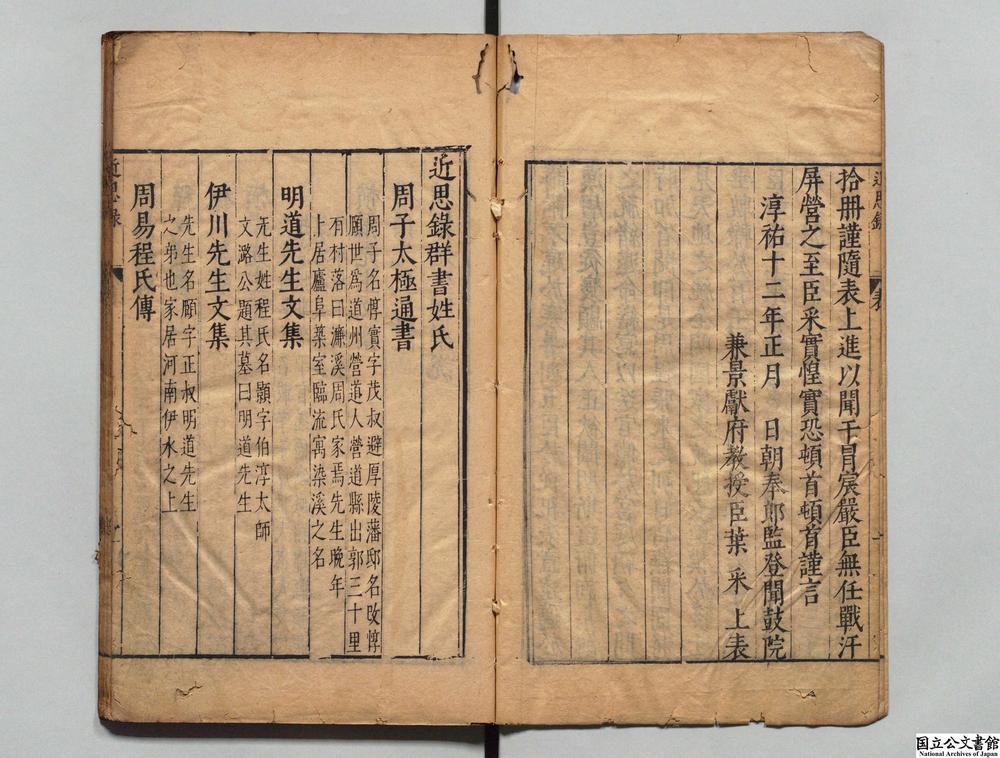 拾册謹隨表上進以聞干冐宸嚴臣無任戰汗
屏營之至臣采實惶實恐頓首頓首謹言
淳祐十二年正月　日朝奉郎監登聞鼓院
兼景獻府教授臣葉　采　上表
近思錄群書姓氏
周子太極通書
周子名惇實字茂叔避厚陵藩邸名改惇
頤世爲道州營道人營道縣出郭三十里
有村落曰濂溪周氏家焉先生晚年
卜居廬阜築室臨流寓濂溪之名
明道先生文集
先生姓程氏名顥字伯淳太師
文潞公題其墓曰明道先生
伊川先生文集
先生名頤字正叔明道先生
之弟也家居河南伊水之上
周易程氏傳
近思錄
國立公文書館
National Archives of Japan